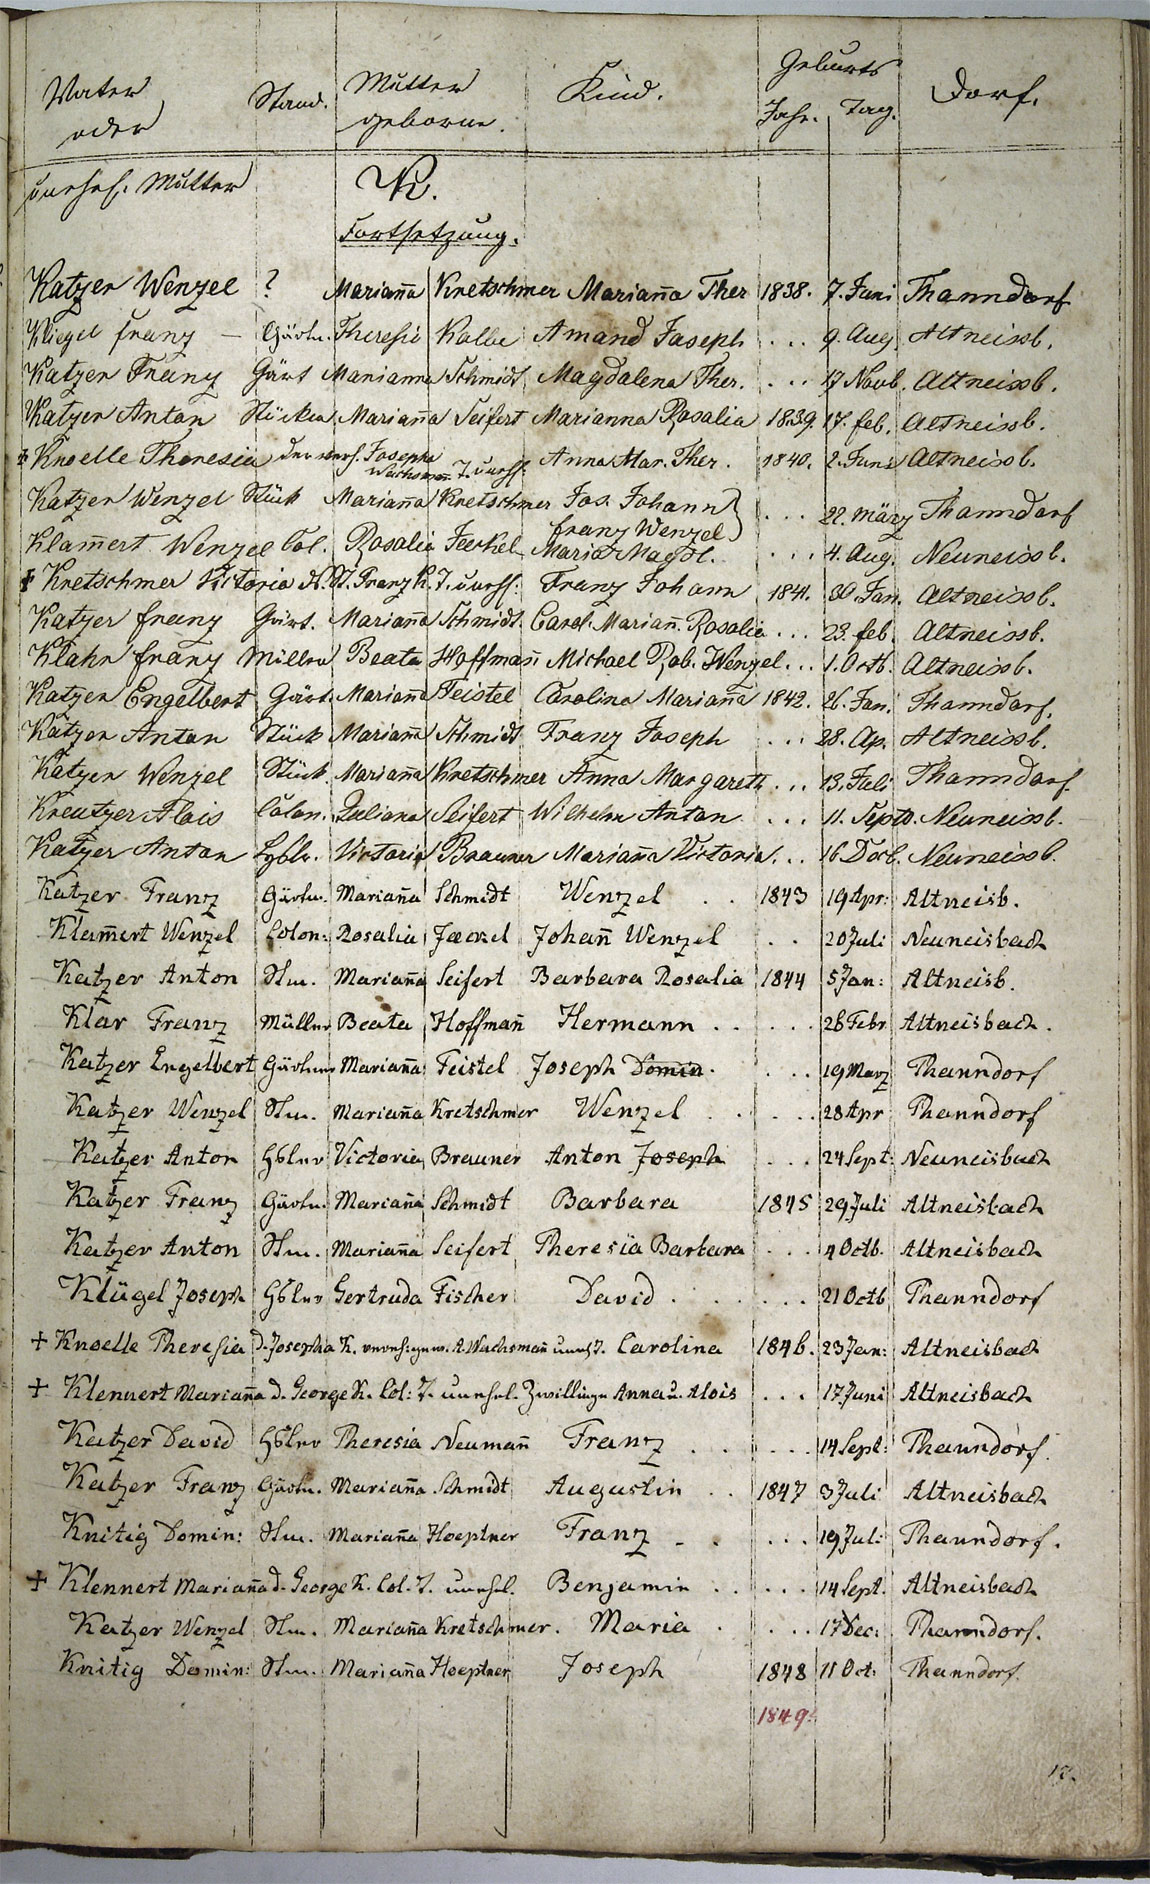 Vater oder Stand. Mutter geborne. Kind. Geburts Jahr. Tag. Dorf.
unehel. Mutter K.
Fortsetzung.
Katzer Wenzel ? Marian̄a Kretschmer Marian̄a Ther 1838. 7. Juni Thanndorf
Kliegel Franz – Gärtn. Theresie Kolbe Amand Joseph ... 9. Aug Altneissb.
Katzer Franz Gärt Marianna Schmidt Magdalena Ther. ... 17 Novb. Altneissb.
Katzer Anton Stücker Marian̄a Seifert Marianna Rosalia 1839. 17. feb. Altneissb.
+ Knoelle Theresia der verh. Josepha Wachsman̄ T. unehl: Anna Mar. Ther. 1840. 2. Juni Altneissb.
Katzer Wenzel Stück Marian̄a Kretschmer Jos. Johann } ... 22. März Thanndorf
Franz Wenzel
Klam̄ert Wenzel Col. Rosalia Jeckel Maria Magdl. ... 4. Aug. Neuneissb.
+ Kretschmer Victoria d. St. Franz K. T. unehl: Franz Johann 1841. 30. Jan. Altneissb.
Katzer Franz Gärt. Marian̄a Schmidt. Carol. Marian̄. Rosalia ... 23. feb. Altneissb.
Klahr Franz Müller Beata Hoffman̄ Michael Rob. Wenzel ... 1. Octb. Altneissb.
Katzer Engelbert Gärt. Marian̄a Feistel Carolina Marian̄a 1842. 26. Jan. Thanndorf.
Katzer Anton Stück Marian̄a Schmidt Franz Joseph ... 28. Ap. Altneissb.
Katzer Wenzel Stück. Marian̄a Kretschmer Anna Margareth ... 13. Juli Thanndorf.
Kreutzer Alois Colon. Juliana Seifert Wilhelm Anton ... 11. Septb. Neuneissb.
Katzer Anton Victoria Brauner Marian̄a Victoria ... 16 Decb. Neuneissb.
Katzer Franz Gärtn. Marian̄a Schmidt Wenzel .. 1843 19 Apr: Altneisb.
Klam̄ert Wenzel Colon: Rosalia Jaeckel Johan̄ Wenzel .. 20 Juli Neuneisbach
Katzer Anton Stm. Marian̄a Seifert Barbara Rosalia 1844 5 Jan: Altneisb.
Klar Franz Müller Beata Hoffman̄ Hermann ..... 26 Febr Altneisbach.
Katzer Engelbert Gärtner Marian̄a Feistel Joseph Domin. ... 19 Marz Thanndorf
Katzer Wenzel Stm. Marian̄a Kretschmer Wenzel ..... 28 Apr Thanndorf
Katzer Anton Victoria Brauner Anton Joseph ... 24 Sept: Neuneisbach
Katzer Franz Gärtn. Marian̄a Schmidt Barbara 1845 29 Juli Altneisbach
Katzer Anton Stm. Marian̄a Seifert Theresia Barbara ... 4 Octb. Altneisbach
Klügel Joseph Gertruda Fischer David ...... 21 Octb Thanndorf
+ Knoelle Theresia d. Josepha K. A. Wachsman̄ Carolina 1846. 23 Jan: Altneisbach
+ Klennert Marian̄a d. George K. Col: T. unehel. Zwillinge Anna u. Alois ... 17 Juni Altneisbach
Katzer David Theresia Neuman̄ Franz ..... 14 Sept: Thanndorf.
Katzer Franz Gärtn. Marian̄a Schmidt Augustin .. 1847 3 Juli Altneisbach
Knitig Domin: Stm. Marian̄a Hoeptner Franz ... 19 Jul: Thanndorf.
+ Klennert Marian̄a d. George K. Col. T. unehel. Benjamin ..... 14 Sept. Altneisbach
Katzer Wenzel Stm. Marian̄a Kretschmer. Maria .... 17 Dec: Thanndorf.
Knitig Domin: Stm. Marian̄a Hoeptner Joseph 1848 11 Oct: Thanndorf.
1849.
17.